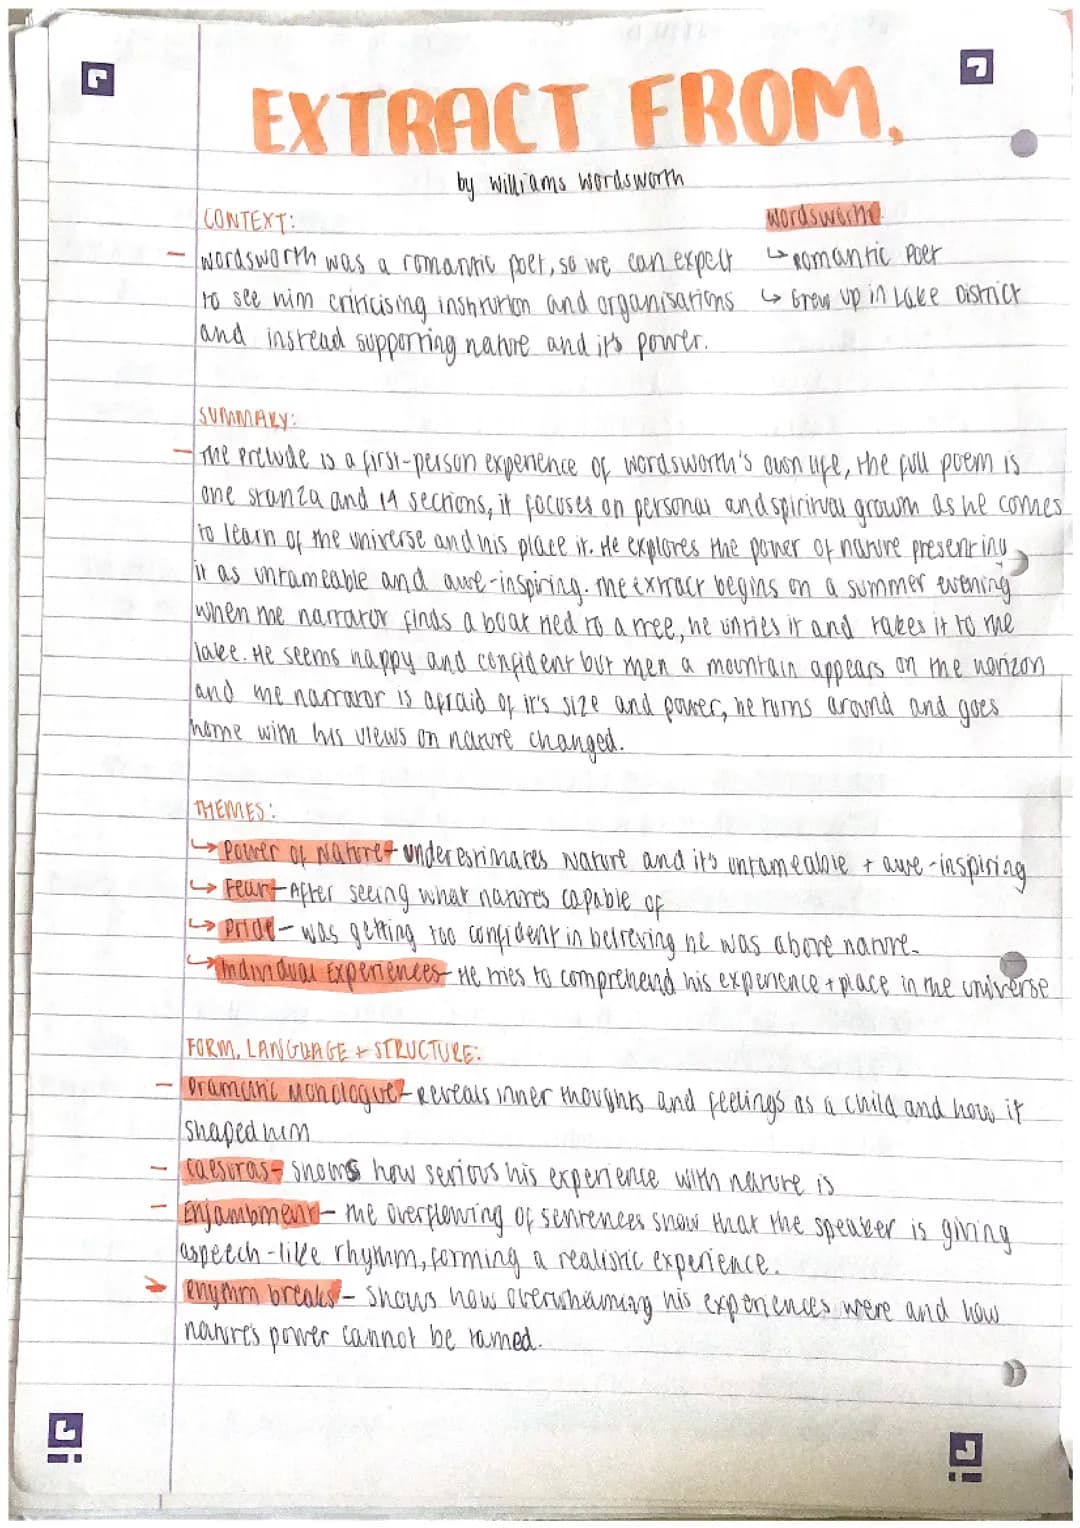 EXTRACT FROM,
by Williams Wordsworth
CONTEXT:
- Wordsworth was a romantic poet, so we can expect
to see him criticising institution and organisations
and instead supporting nature and it's power.
Wordsworth
↳ Romantic Poet
↳ Grew up in Lake District
SUMMARY:
- The Prelude is a first-person experience of Wordsworth's own life, the full poem is
one stanza and 14 sections, it focuses on personal and spiritual growth as he comes
to learn of the universe and his place it. He explores the power of nature presenting
it as untameable and awe-inspiring. The extract begins on a summer evening
when the narrator finds a boat tied to a tree, he unties it and takes it to the
lake. He seems happy and confident but then a mountain appears on the horizon
and the narrator is afraid of it's size and power, he turns around and goes
home with his views on nature changed.
THEMES:
↳ Power of Nature - underestimates nature and it's untameable + awe-inspiring
↳ Fear - After seeing what nature's capable of
↳ Pride - was getting too confident in believing he was above nature.
↳ Individual Experiences - He tries to comprehend his experience + place in the universe
FORM, LANGUAGE + STRUCTURE:
- Dramatic Monologue - Reveals inner thoughts and feelings as a child and how it
shaped him
- Caesuras - shows how serious his experience with nature is
- Enjambment - the overflowing of sentences show that the speaker is giving
a speech-like rhythm, forming a realistic experience.
→ Rhythm breaks - shows how overwhelming his experiences were and how
nature's power cannot be tamed.